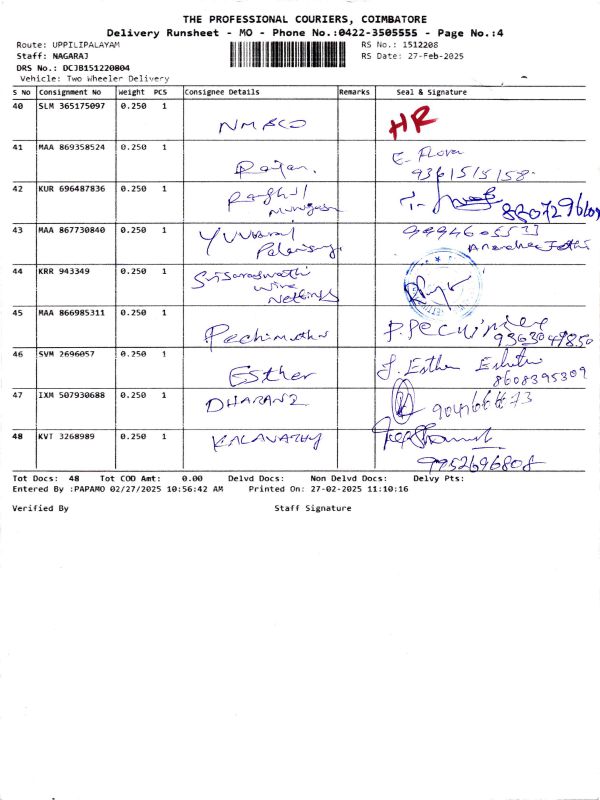 THE PROFESSIONAL COURIERS, COIMBATORE
Delivery Runsheet - MO - Phone No.:0422-3505555 - Page No.:4
Route: UPPILIPALAYAM RS No.: 1512208
Staff: NAGARAJ RS Date: 27-Feb-2025
DRS No.: DCJB151220804
Vehicle: Two Wheeler Delivery
S No Consignment No Weight PCS Consignee Details Remarks Seal & Signature
40 SLM 365175097 0.250 1
HR
41 MAA 869358524 0.250 1 E. Flora
Rajan. 9361515158.
42 KUR 696487836 0.250 1 Raghul
43 MAA 867730840 0.250 1 Yuvaraj
44 KRR 943349 0.250 1 Sri Saraswathi
Wire
Nettings
45 MAA 866985311 0.250 1
Pechimuthu
9363049850
46 SVM 2696057 0.250 1 J. Esther
Esther 8608395309
47 IXM 507930688 0.250 1
DHARANI
48 KVT 3268989 0.250 1
KALAVATHY
9952696808
Tot Docs: 48 Tot COD Amt: 0.00 Delvd Docs: Non Delvd Docs: Delvy Pts:
Entered By :PAPAMO 02/27/2025 10:56:42 AM Printed On: 27-02-2025 11:10:16
Verified By Staff Signature